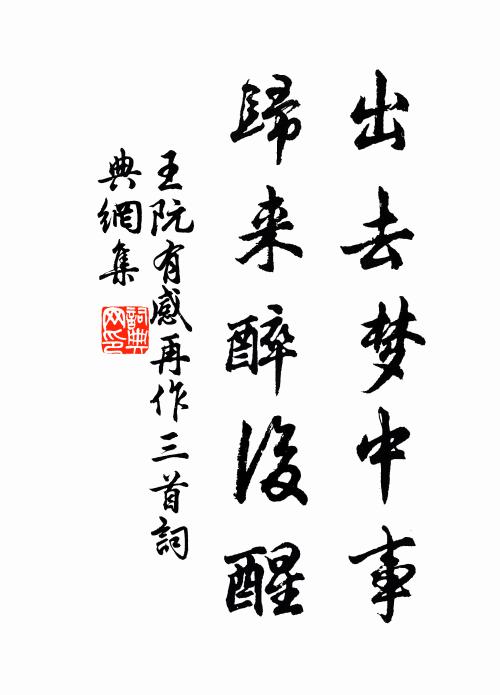 出去梦中事
歸来醉後醒
王阮有感再作三首詞
典網集
詞典
网印